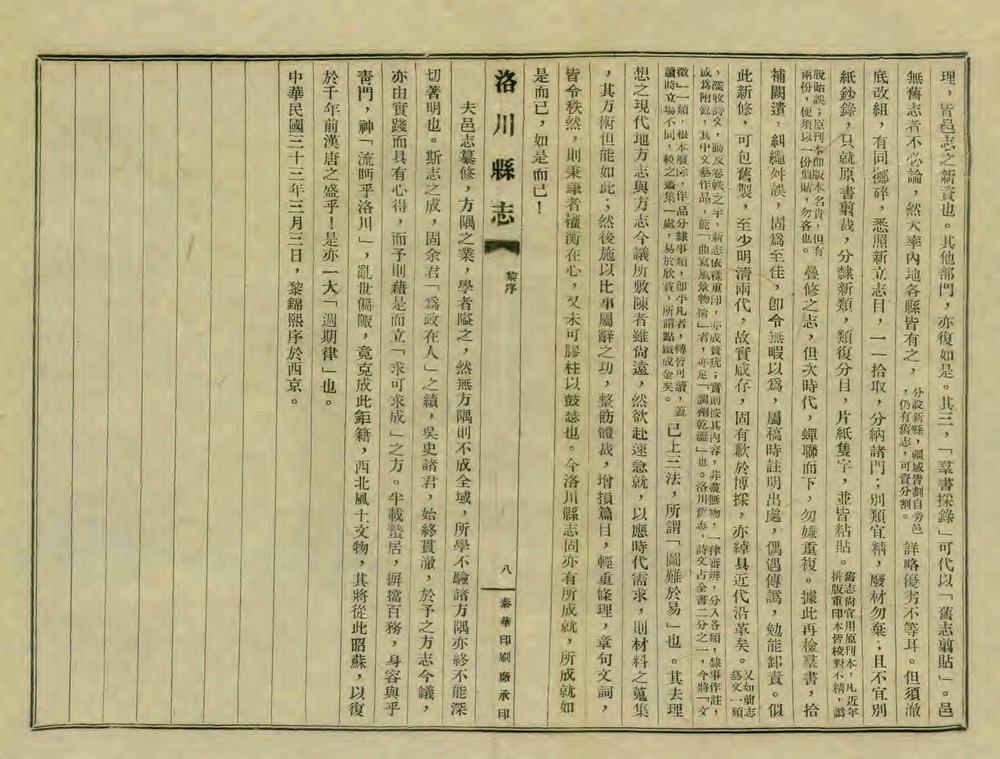 理，皆邑志之新責也。其他部門，亦復如是。其三，「羣書採錄」可代以「舊志翦貼」。邑
無舊志者不必論，然大率內地各縣皆有之，分設新縣，疆域皆割自旁邑，仍有舊志，可資分割。詳略優劣不等耳。但須澈
底改組，有同擲碎，悉照新立志目，一一拾取，分納諸門；別類宜精，廢材勿棄；且不宜別
紙鈔錄，只就原書翦裁，分隸新類，類復分目，片紙隻字，並皆粘貼。舊志尙宜用原刊本，凡近年排版重印本皆校對不精，譌
脫貽誤；原刊本卽版本名貴，但有兩份，便須以一份翦貼，勿客也。疊修之志，但次時代，蟬聯而下，勿嫌重複。據此再檢羣書，拾
補闕遺，糾繩舛誤，固爲至佳，卽令無暇以爲，屬稿時註明出處，偶遇傳譌，勉能卸責。似
此新修，可包舊製，至少明清兩代，故實咸存，固有歉於博採，亦綽具近代沿革矣。又如前志藝文一類
，濫收詩文，動反卷帙之半，新志依樣重印，亦成贅疣；實則按其內容，非盡無物，一律審辨，分入各類，隸事作註，
或爲附錄，其中文藝作品，能「曲寫風景物情」者，亦足「調劑乾濕」也。洛川舊志，詩文占全書二分之一，今將「文
徵」一類，根本廢除，作品分隸事類，卽平凡者，轉皆可讀，蓋讀時立場不同，較之叢集一處，易於欣賞，所謂點鐵成金矣。已上三法，所謂「圖難於易」也。其去理
想之現代地方志與方志今議所敷陳者雖尙遠，然欲赴速急就，以應時代需求，則材料之蒐集
，其方術但能如此；然後施以比事屬辭之功，整飭體裁，增損篇目，輕重條理，章句文詞，
皆令秩然，則秉筆者權衡在心，又未可膠柱以鼓瑟也。今洛川縣志固亦有所成就，所成就如
是而已，如是而已！
洛川縣志
黎序
八
泰華印刷廠承印
夫邑志纂修，方隅之業，學者隘之，然無方隅則不成全域，所學不驗諸方隅亦終不能深
切著明也。斯志之成，固余君「爲政在人」之績，吳史諸君，始終貫澈，於予之方志今議，
亦由實踐而具有心得，而予則藉是而立「求可求成」之方。半載蟄居，摒擋百務，身容與乎
青門，神「流眄乎洛川」，亂世偏陬，竟克成此鉅籍，西北風土文物，其將從此昭蘇，以復
於千年前漢唐之盛乎！是亦一大「週期律」也。
中華民國三十三年三月三日，黎錦熙序於西京。